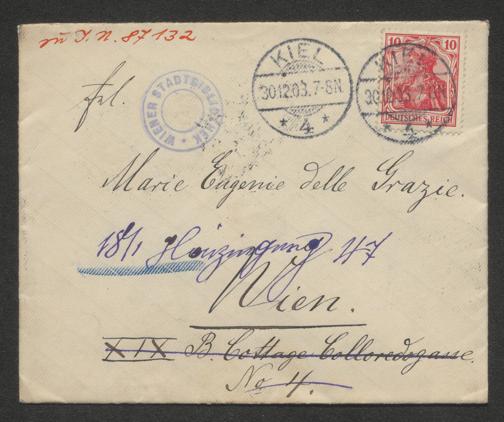 zu I. N. 87132
KIEL
30.12.03.7-8N.
* 4 *
KIEL
4
10 10
DEUTSCHES REICH
WIENER STADTBIBLIOTHEK
Frl.
Marie Eugenie delle Grazie.
18/1 47
Wien.
XIX B. Cottage Colloredogasse.
No 4.